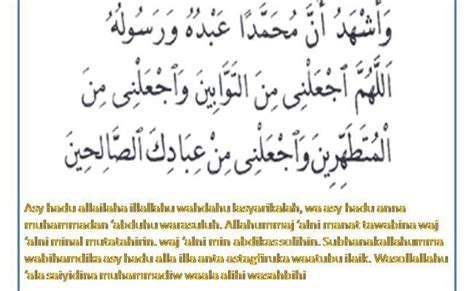 وَأَشْهَدُ أَنَّ مُحَمَّدًا عَبْدُهُ وَرَسُولُهُ
اَللَّهُمَّ اجْعَلْنِى مِنَ التَّوَّابِينَ وَاجْعَلْنِى مِنَ
الْمُتَطَهِّرِينَ وَاجْعَلْنِى مِنْ عِبَادِكَ الصَّالِحِينَ
Asy hadu allailaha illallahu wahdahu lasyarikalah, wa asy hadu anna
muhammadan 'abduhu warasuluh. Allahummaj 'alni manat tawabina waj
'alni minal mutatahirin. waj 'alni min abdikas solihin. Subhanakallahumma
wabihamdika asy hadu alla illa anta astagfiruka waatubu ilaik. Wasollallahu
'ala saiyidina muhammadiw waala alihi wasahbihi